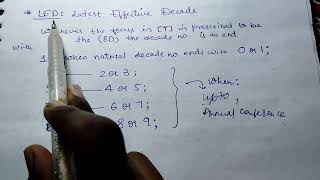 * LED: Latest Effective Decade
Whenever the focus is [T] is prescribed to be
With the (LED) the decade no. is to end
when natural decade no ends with 0 or 1;
2 or 3;
4 or 5;
6 or 7;
8 or 9;
When:
upto
Annual conference